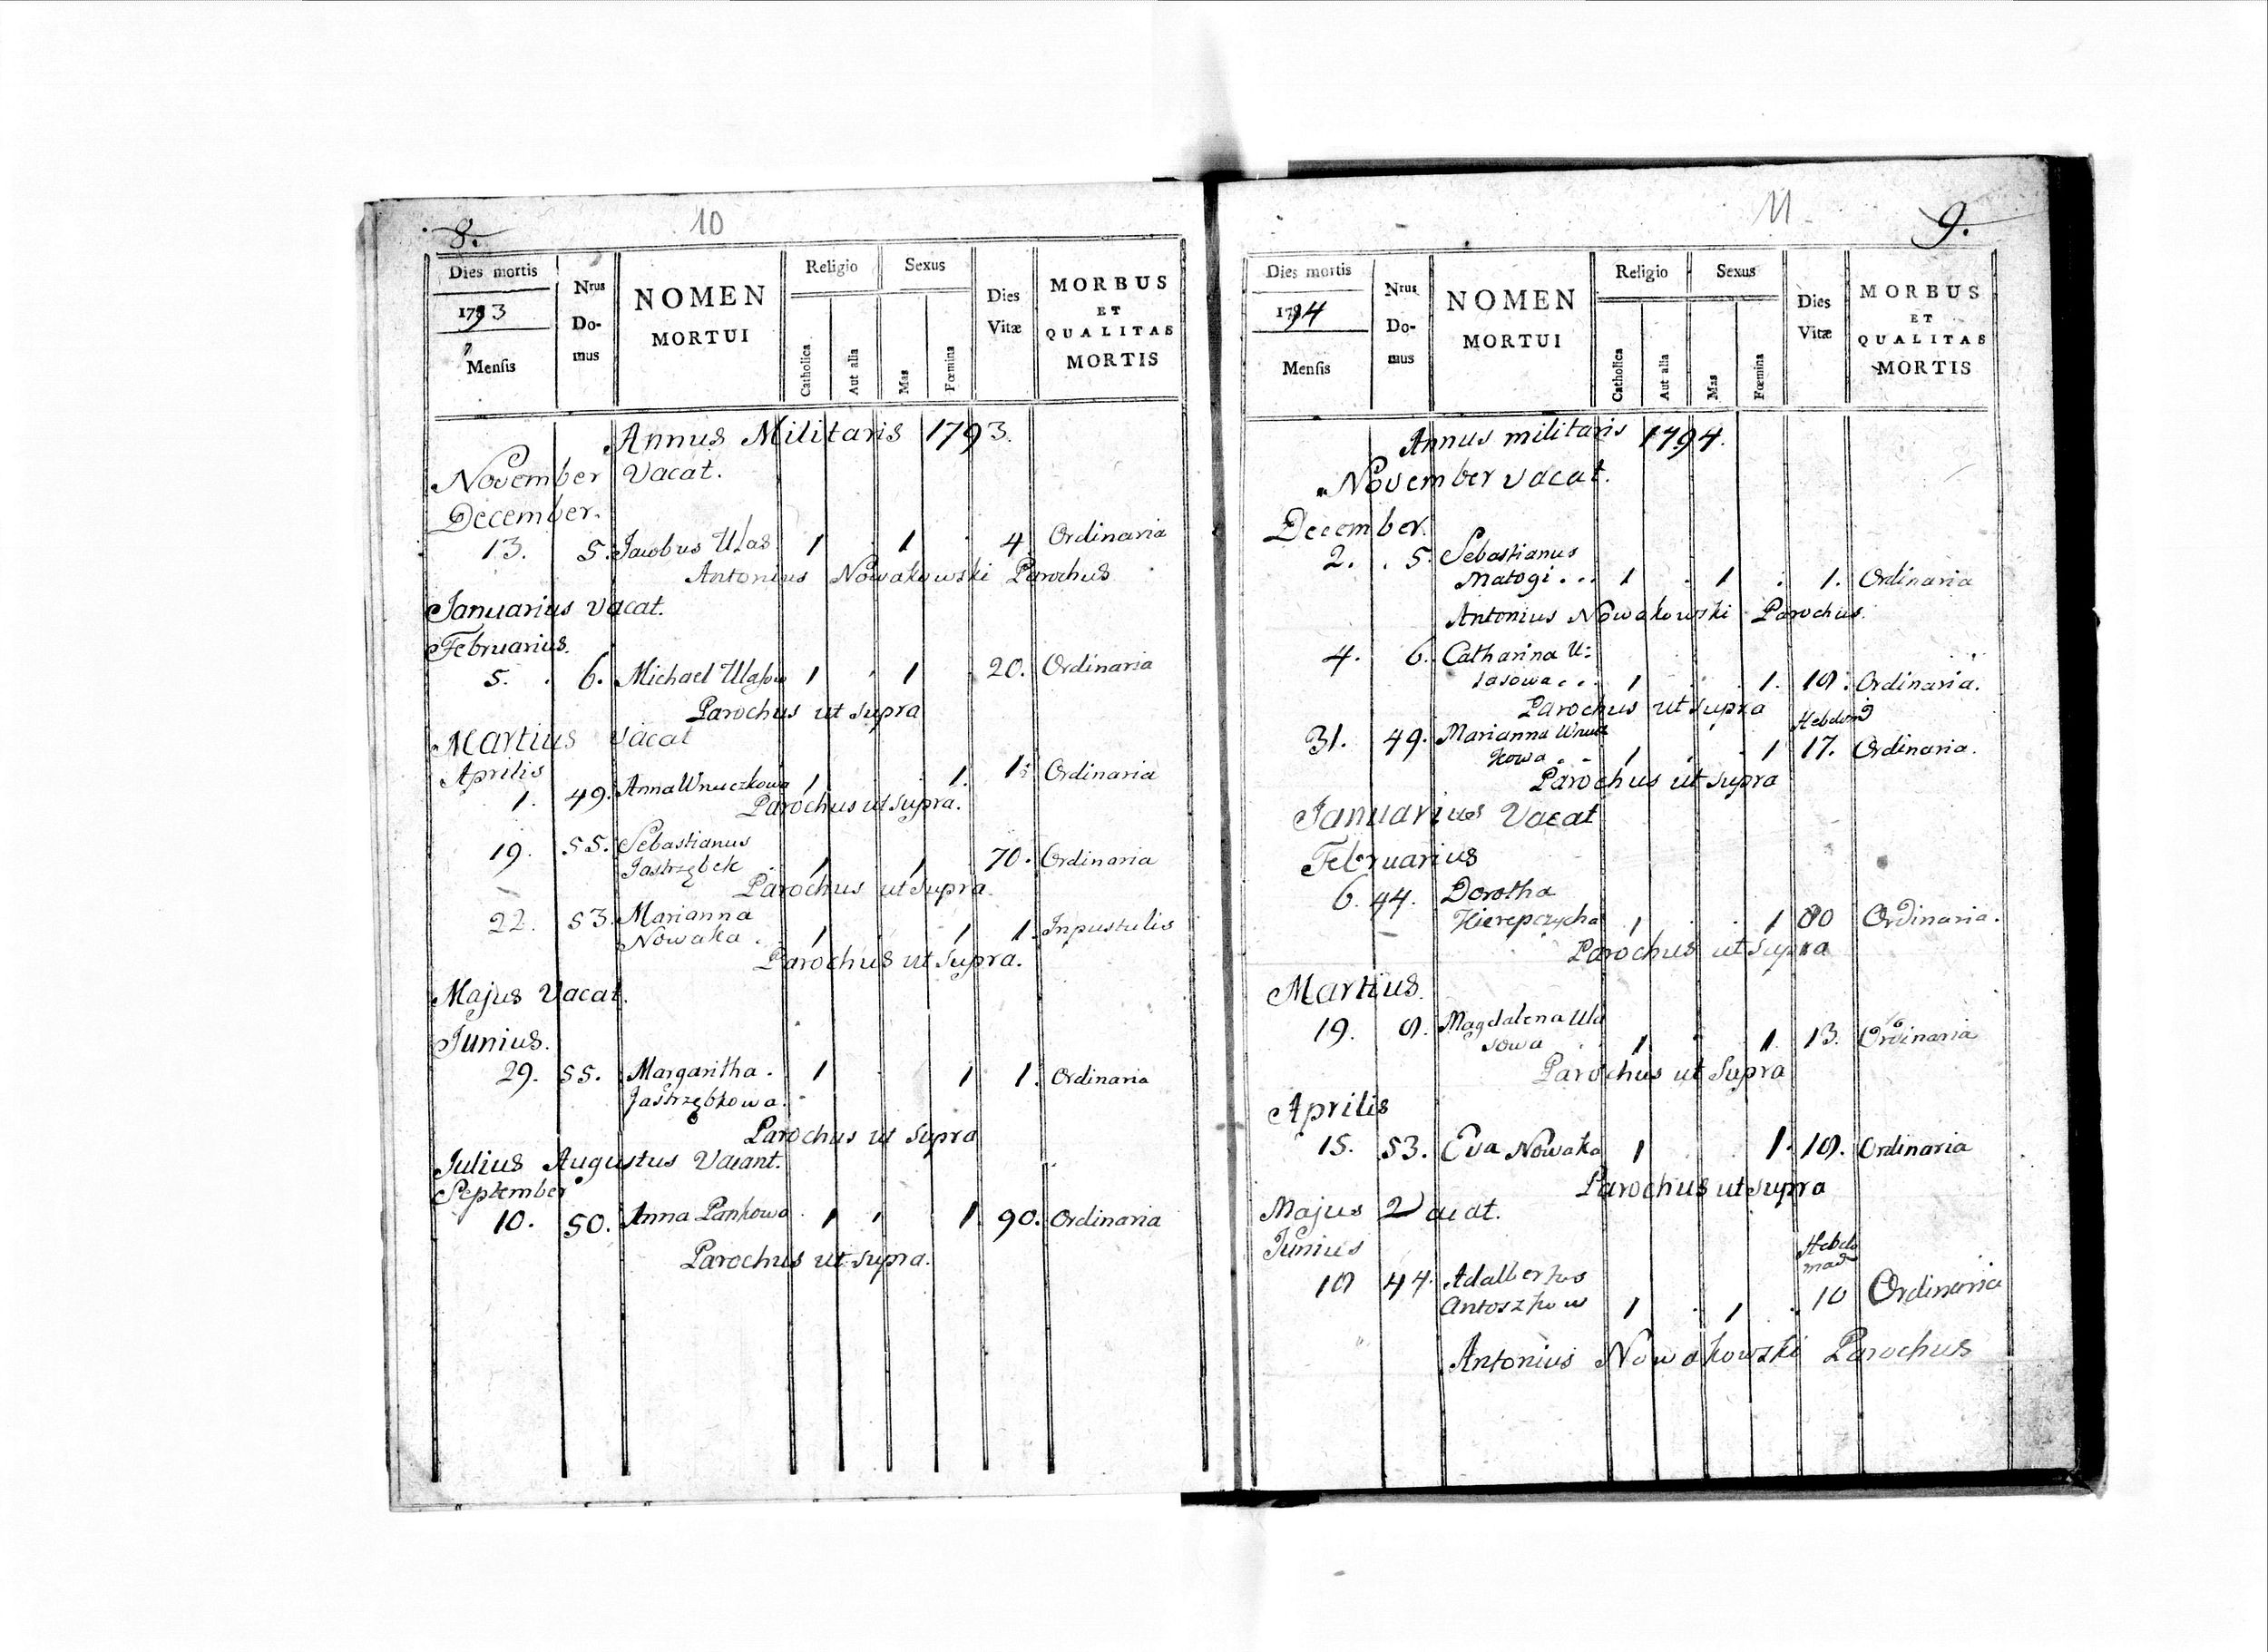 8.
10
Dies mortis
1793
Mensis
Nrus
Do-
mus
NOMEN
MORTUI
Religio
Catholica
Aut alia
Sexus
Mas
Fœmina
Dies
Vitæ
MORBUS
ET
QUALITAS
MORTIS
Annus Militaris 1793.
November Vacat.
December.
13. 5. Jacobus Ulas 1 . 1 . 4 Ordinaria
Antonius Nowakowski Parochus
Januarius vacat.
Februarius.
5. 6. Michael 1 . 1 . 20. Ordinaria
Parochus ut supra
Martius vacat
Aprilis
1. 49. Anna Wnuczkowa 1 1. 1. Ordinaria
Parochus ut supra.
19. 55. Sebastianus
Jastrzębek . 1 1 70. Ordinaria
Parochus ut supra.
22. 53. Marianna
Nowaka . 1 1 1. Inpustulis
Parochus ut supra.
Majus Vacat.
Junius.
29. 55. Margaritha . 1 1 1. Ordinaria
Jastrzębkowa.
Parochus ut supra
Julius Augustus Vacant.
September
10. 50. Anna Pankowa . 1 1 90. Ordinaria
Parochus ut supra.
11
9.
Dies mortis
1794
Mensis
Nrus
Do-
mus
NOMEN
MORTUI
Religio
Catholica
Aut alia
Sexus
Mas
Fœmina
Dies
Vitæ
MORBUS
ET
QUALITAS
MORTIS
Annus militaris 1794.
November vacat.
December.
2. 5. Sebastianus
1 . 1 . 1. Ordinaria
Antonius Nowakowski Parochus.
4. 6. Catharina U:
lasowa . . 1 1. Ordinaria.
Parochus ut supra
31. 49. Marianna Wnucz
kowa . . 1 . 1 17. Ordinaria.
Parochus ut supra
Januarius Vacat
Februarius
6. 44. Dorotha
1 . . 1 80 Ordinaria.
Parochus ut supra
Martius.
19. Magdalena Ula
sowa 1 1. 13. Ordinaria
Parochus ut Supra
Aprilis
15. 53. Eva Nowaka 1 1. Ordinaria
Parochus ut supra
Majus Vacat.
Junius
Hebdo
mad
44. Adalbertus
Antoszkow 1 . 1 . 10 Ordinaria
Antonius Nowakowski Parochus